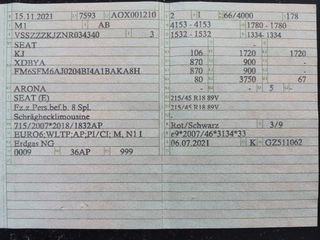 15.11.2021 7593 AOX001210
M1 AB
VSSZZZKJZNR034340 3
SEAT
KJ
XDBYA
FM6SFM6AJ0204BI4A1BAKA8H
ARONA
SEAT (E)
Fz.z.Pers.bef.b. 8 Spl.
Schräghecklimousine
715/2007*2018/1832AP
EURO6;WLTP;AP;PI/CI; M, N1 I
Erdgas NG
0009 36AP 999
2 1 66/4000 178
4153 - 4153 1780 - 1780
1532 - 1532 1334 - 1334
- -
106 1720 1720
870 900 -
870 900 -
80 3750 67
- - 5 -
215/45 R18 89V
215/45 R18 89V
-
Rot/Schwarz 3/9
e9*2007/46*3134*33
06.07.2021 K GZ511062